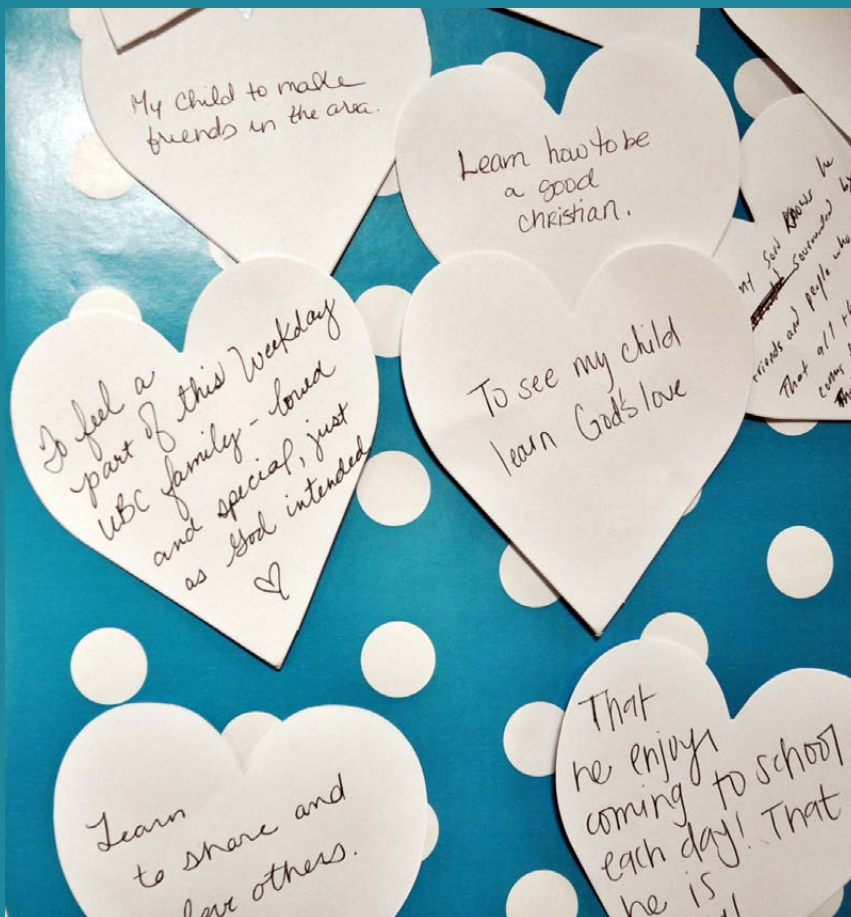 My child to make
friends in the area.
Learn how to be
a good
christian.
my son knows he
surrounded by
friends and people who
That all
To feel a
part of this Weekday
UBC family - loved
and special, just
as God intended
♡
To see my child
learn God's love
Learn
to share and
love others.
That
he enjoys
coming to school
each day! That
he is